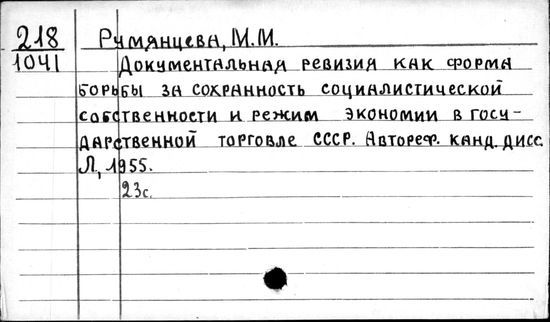 218 Румянцева, М.М.
1041 Документальная ревизия как форма
борьбы за сохранность социалистической
собственности и режим экономии в госу-
дарственной торговле СССР. Автореф. канд. дисс.
Л, 1955.
23с.